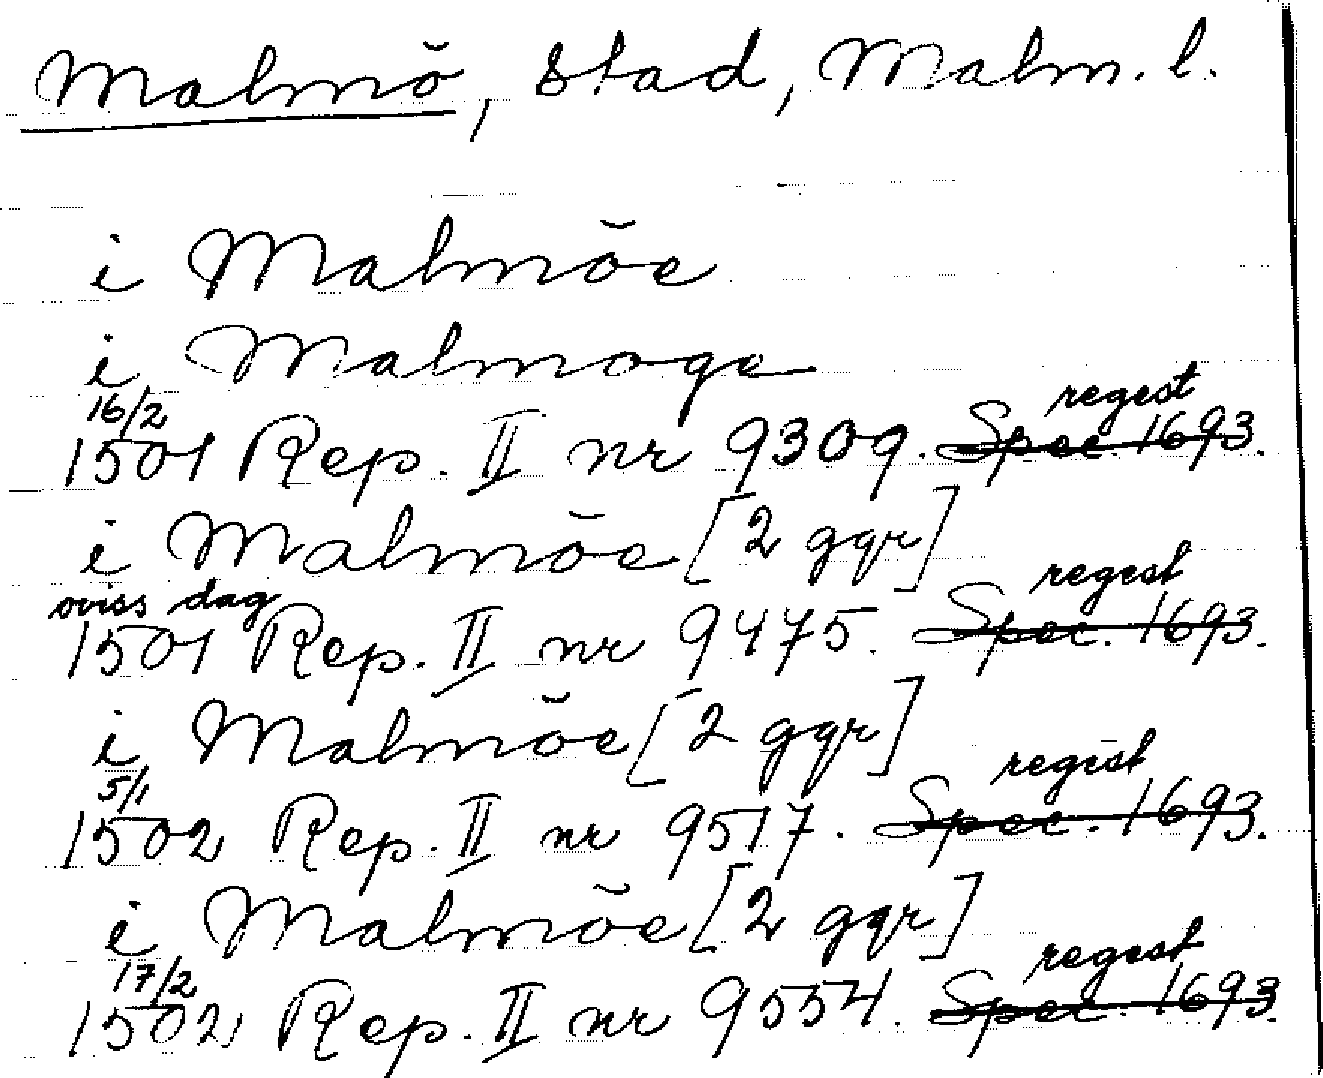 Malmö, Stad, Malm. l.
i Malmöe
i Malmoge
16/2 regest
1501 Rep. II nr 9309. Spec. 1693.
i Malmöe [2 ggr]
oviss dag regest
1501 Rep. II nr 9475. Spec. 1693.
i Malmöe [2 ggr]
5/1 regest
1502 Rep. II nr 9517. Spec. 1693.
i Malmöe [2 ggr]
17/2 regest
1502 Rep. II nr 9554. Spec. 1693.